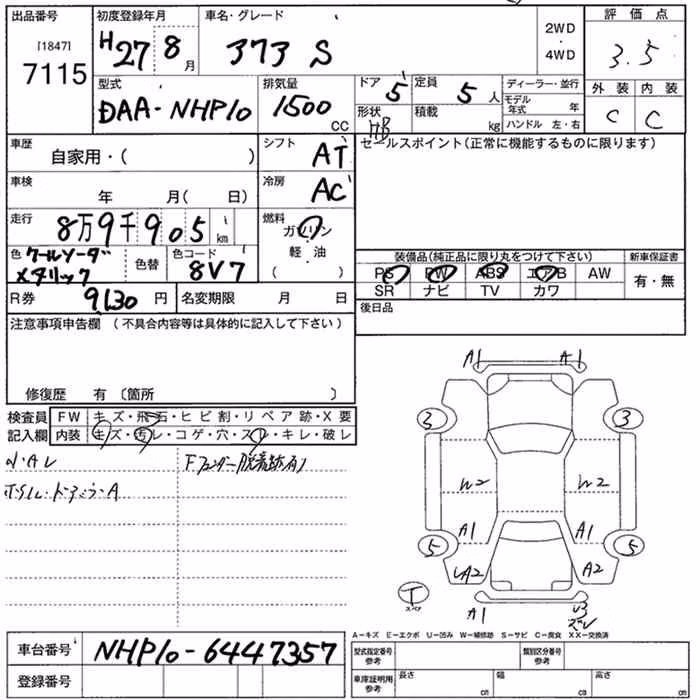 出品番号
[1847]
7115
初度登録年月
H27 8 月
車名・グレード
373 S
2WD
・
4WD
評価点
3.5
型式
DAA-NHP10
排気量
1500
CC
ドア
5
定員
5 人
形状
HB
積載
kg
ディーラー・並行
モデル年式 年
ハンドル 左・右
外装 内装
C C
車歴
自家用・( )
シフト
AT
車検
年 月( 日)
冷房
AC
走行
8万9千905 km
燃料
ガソリン
・
軽・油
( )
色 クールソーダ
メタリック
色替
色コード
8V7
R券 9,130 円
名変期限 月 日
セールスポイント(正常に機能するものに限ります)
装備品(純正品に限り丸をつけて下さい)
PS PW ABS エアB AW
SR ナビ TV カワ
新車保証書
有・無
後日品
注意事項申告欄 (不具合内容等は具体的に記入して下さい)
修復歴 有 〔箇所 〕
検査員
記入欄
FW キズ・飛石・ヒビ割・リペア跡・X要
内装 キズ・汚レ・コゲ・穴・スレ・キレ・破レ
Fフェンダー脱着跡有り
A1 A1
3 3
W2 W2
A1 A1
5 5
A2 A2
T
スペア
A1
ズレ
A-キズ E-エクボ U-凹み W-補修跡 S-サビ C-腐食 XX-交換済
車台番号 NHP10-6447357
登録番号
型式指定番号
参考
類別区分番号
参考
車庫証明用
参考
長さ cm
幅 cm
高さ cm